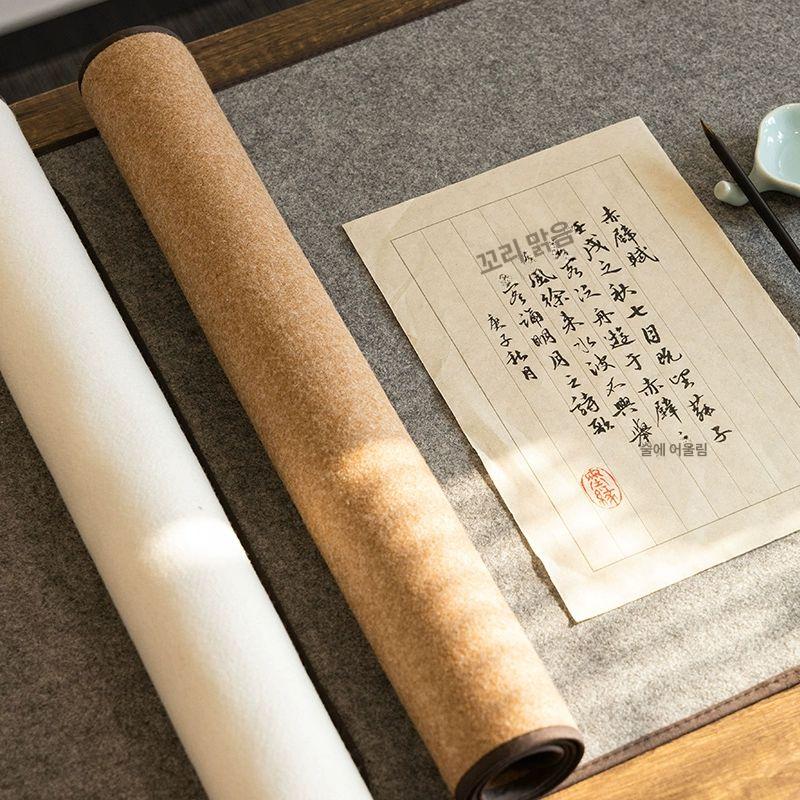 赤壁賦
壬戌之秋七月既望蘇子
客泛舟遊于赤壁
風徐來水波不興舉
客誦明月之詩歌
庚子秋月
꼬리,맑음
술에 어울림